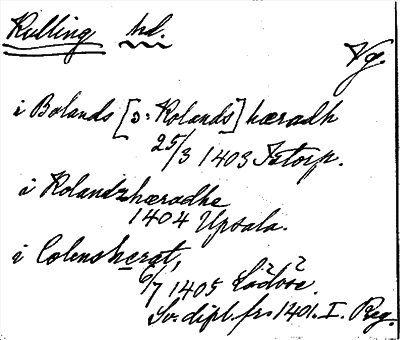 Kulling hd.
Vg.
i Bolands [ɔ: Kolands] hæradh
25/3 1403 Istorp.
i Kolandzhæradhe
1404 Upsala.
i Colensherat,
6/7 1405
Sv. dipl. fr. 1401. I. Reg.